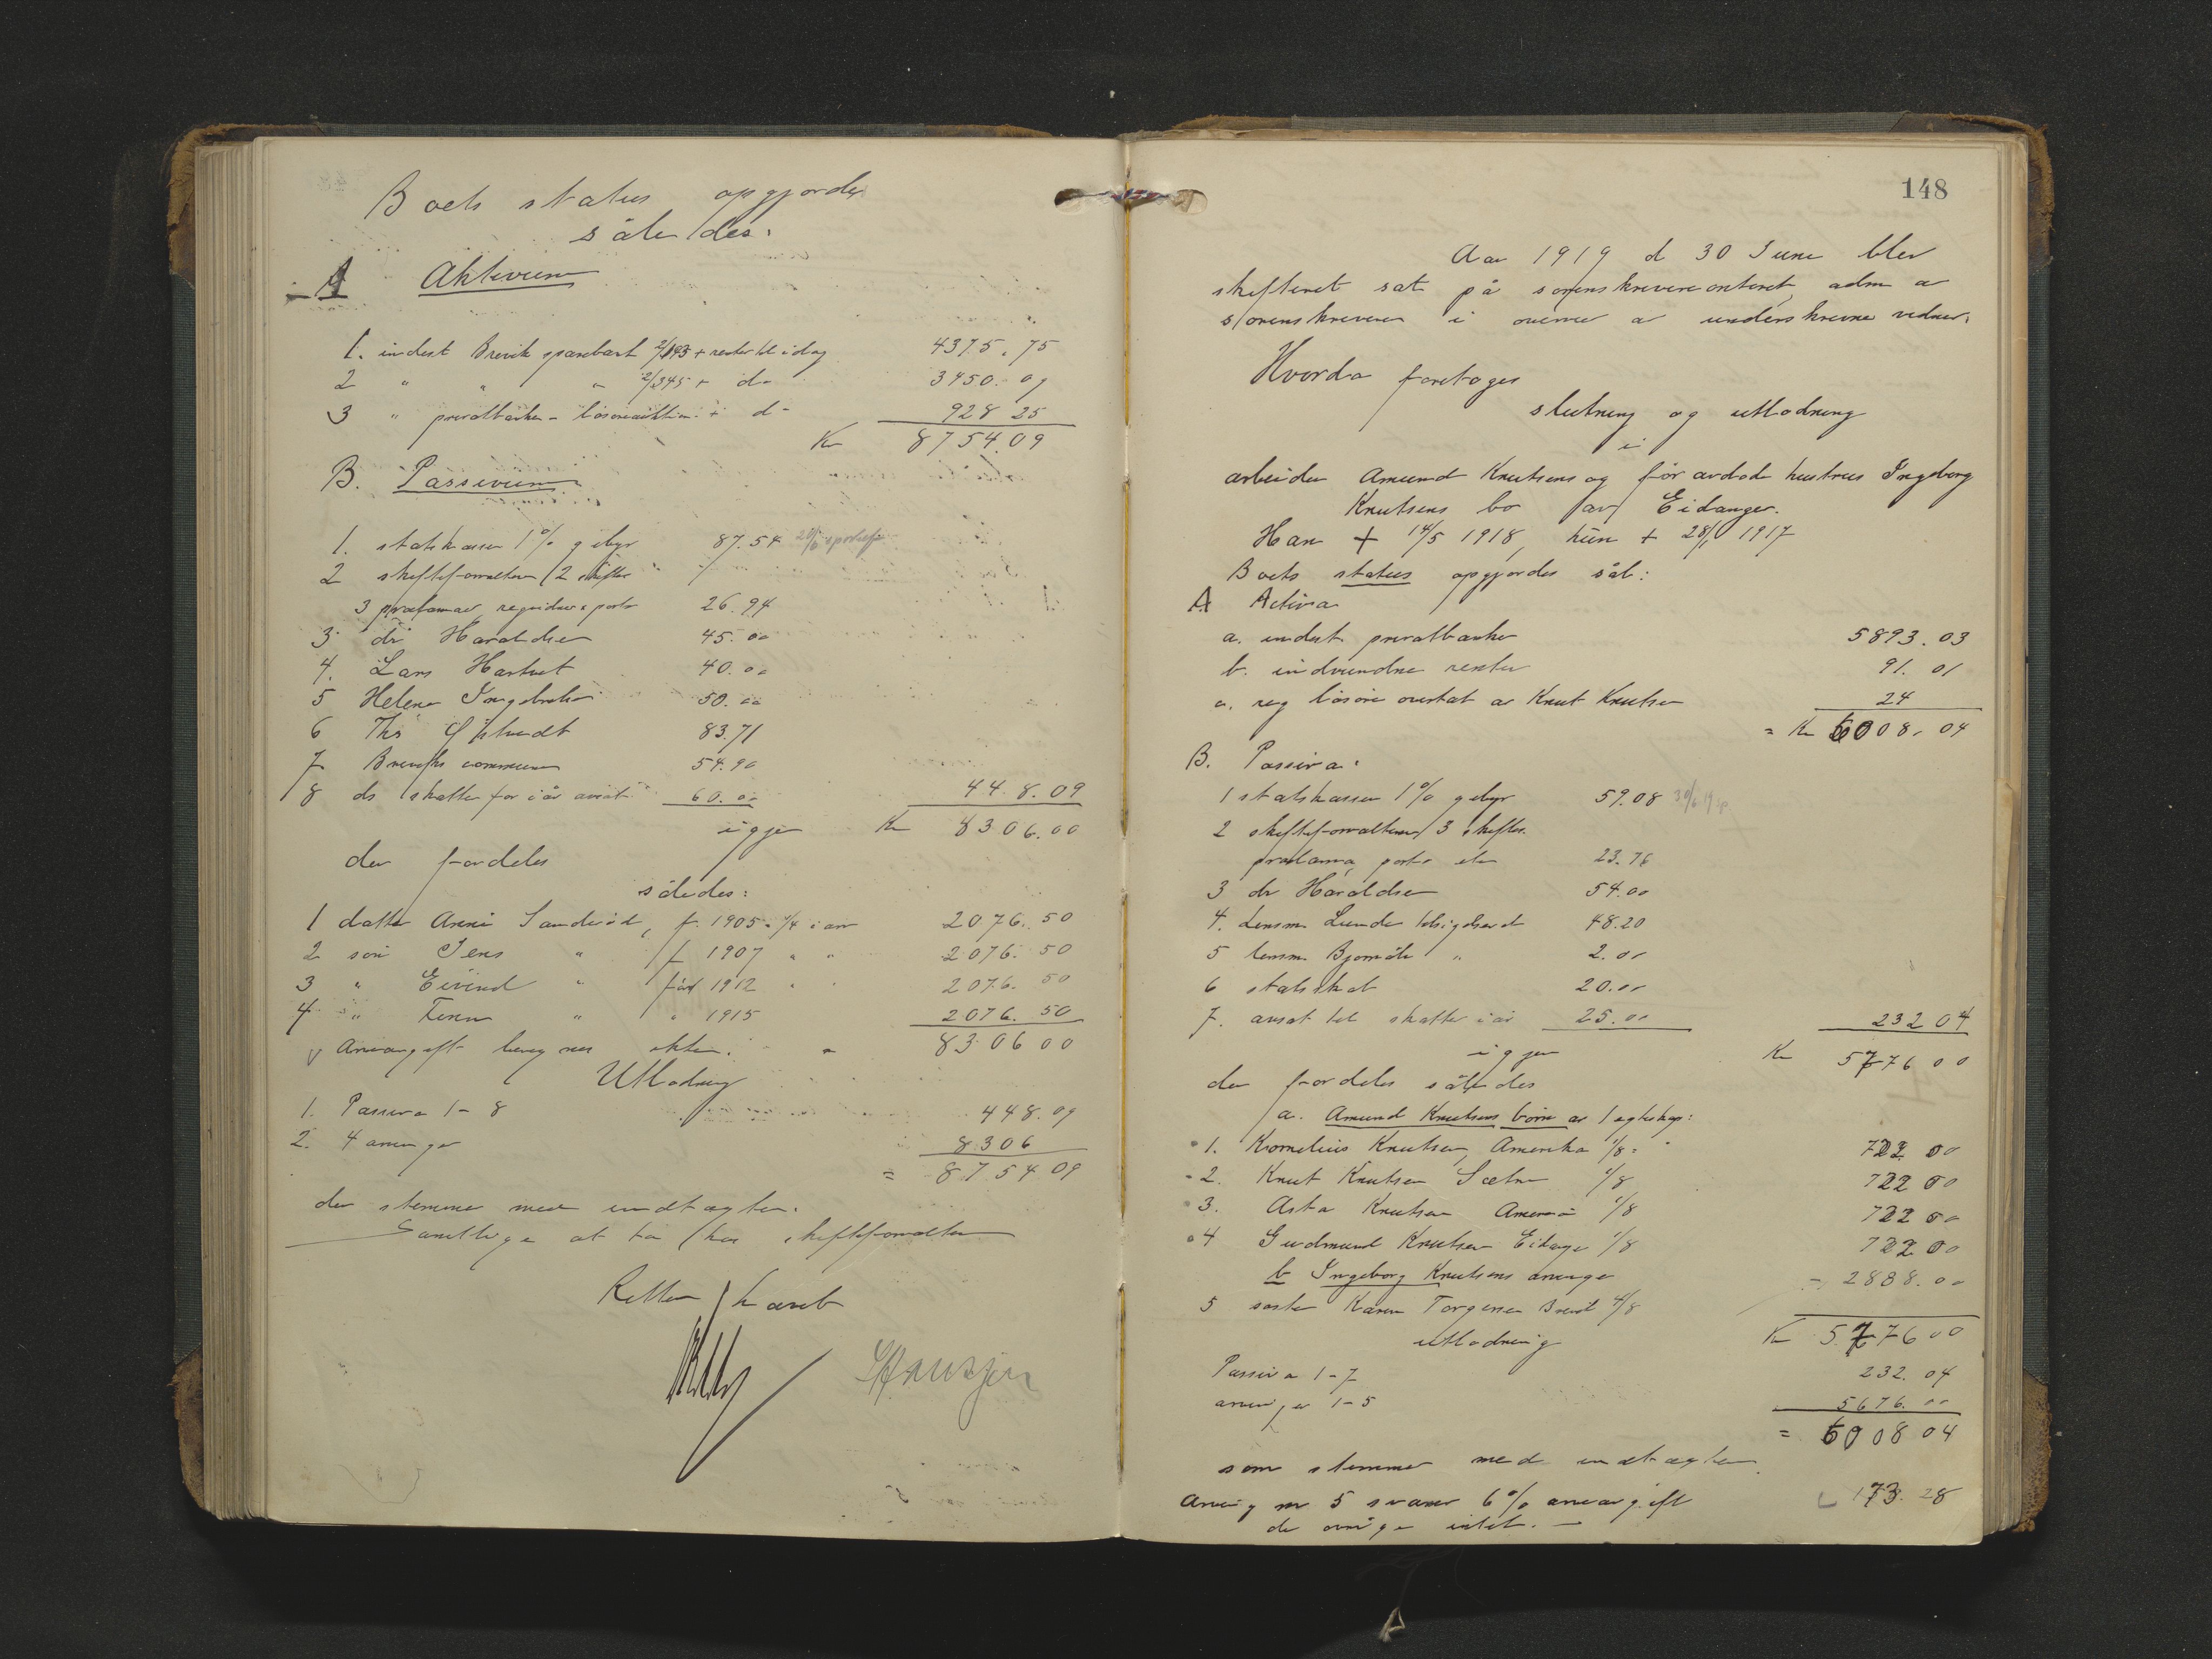 Boets status opgjordes
således:
A Aktivum
1. indest Brevik sparebank 2/193 + renter til idag 4375.75
2 " " " 2/345 + do 3450.09
3 " privatbanken - løsøreauktion + do 928 25
Kr 8754.09
B. Passivum
1. statskassen 1% gebyr 87.54
2 skifteforvalteren (2 skifter
3 proclamaer, regninger & porto 26.94
3 dr Haraldsen 45.00
4. Lars Hartvet 40.00
5 Helene Ingebretsen 50.00
6 Ths 83.71
7 Breviks commune 54.90
8 do skatter for iår ansat 60.00 448.09
igjen Kr 8306.00
der fordeles
således:
1 datter Anna Sandvik, f. 1905 - 1/4 i arv 2076.50
2 søn Jens " f 1907 " " 2076.50
3 " Eivind " fød 1912 " " 2076.50
4 " Finn " " 1915 2076.50
Arveavgift beregnes ikke. 8306 00
Utlodning
1. Passiva 1-8 448.09
2. 4 arvinger 8306
= 8754 09
der stemmer med indtægten.
Samtlige at ta hos skifteforvalteren
Retten hævet
148
Aar 1919 d 30 Juni blev
skifteret sat på sorenskriverkontoret, adm av
sorenskriveren i overvær av underskrevne vidner.
Hvorda foretoges
slutning og utlodning
i
arbeider Amund Knutsens og før avdøde hustru Ingeborg
Knutsens bo av Eidanger.
Han + 14/5 1918, hun + 28/1 1917
Boets status opgjordes sål:
A Activa
a. indest. privatbanken 5893.03
b. indvundne renter 91.01
c. reg løsøre overtat av Knut Knutsen 24
= Kr 6008.04
B. Passiva:
1 statskassen 1% gebyr 59.08
2 skifteforvalteren 3 skifter
proclama, porto etc 23.76
3 dr Haraldsen 54.00
4. Lensm. Lunde tilsigelser etc 48.20
5 lensm. " 2.00
6 statsskat 20.00
7. ansat til skatter iår 25.00 232 04
igjen Kr 5776 00
der fordeles således
a. Amund Knutsens børn av 1 egteskap:
1. Kornelius Knutsen, Amerika 1/8 = 722 00
2. Knut Knutsen Sætre 1/8 722 00
3. Asta Knutsen Amerika 1/8 722 00
4 Gudmund Knutsen Eidanger 1/8 722 00
b Ingeborg Knutsens arvinger = 2888.00
5 søster Karen Torgersen Brevik 4/8
Kr 5776 00
utlodning
Passiva 1-7 232.04
arvinger 1-5 5676.00
= 6008 04
som stemmer med indtægten
Arving nr 5 svarer 6% arveavgift 173.28
de øvrige intet. -